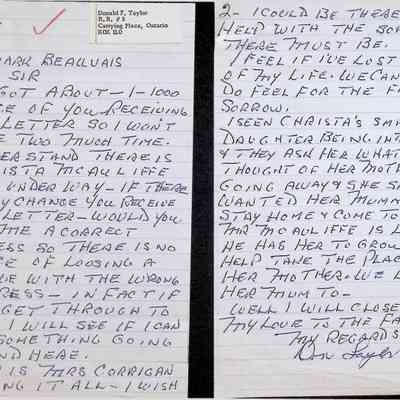 Donald F. Taylor
R. R. # 3
Carrying Place, Ontario
K0K 1L0
MARK BEAUVAIS
SIR
GOT ABOUT - 1-1000
CE OF YOU RECEIVING
LETTER SO I WON'T
E TWO MUCH TIME.
ERSTAND THERE IS
ISTA MCAULIFFE
UNDER WAY - IF THERE
Y CHANGE YOU RECEIVE
LETTER - WOULD YOU
ME A CORRECT
ESS SO THERE IS NO
CE OF LOOSING A
UE WITH THE WRONG
RESS - IN FACT IF
GET THROUGH TO
I WILL SEE IF I CAN
SOMETHING GOING
ND HERE.
IS MRS CORRIGAN
NG IT ALL - I WISH
2- I COULD BE THERE
HELP WITH THE SOR
THERE MUST BE.
I FEEL IF I'VE LOST
OF MY LIFE. WE CAN
DO FEEL FOR THE FA
SORROW.
I SEEN CHRISTA'S SMA
DAUGHTER BEING INT
& THEY ASK HER WHAT
THOUGHT OF HER MOTH
GOING AWAY & SHE SA
WANTED HER MUMM
STAY HOME & COME TO
MR MCAULIFFE IS L
HE HAS HER TO GROW
HELP TAKE THE PLAC
HER MOTHER. WE L
HER MUM TO -
WELL I WILL CLOSE
MY LOVE TO THE FA
MY REGARDS
Don Taylor